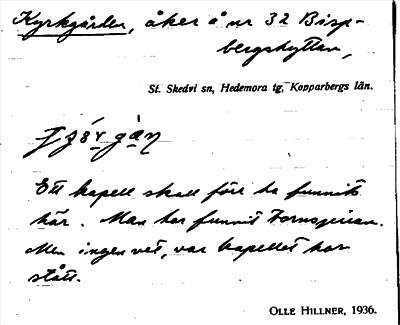 Kyrkgården, åker å nr 32 Bisp-
bergshyttan,
St. Skedvi sn, Hedemora tg, Kopparbergs län.
Ett kapell skall förr ha funnits
här. Man har funnit
Men ingen vet, var kapellet har
stått.
OLLE HILLNER, 1936.